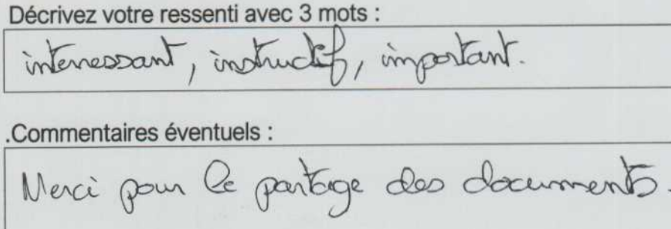 Décrivez votre ressenti avec 3 mots :
interressant, instructif, important.
.Commentaires éventuels :
Merci pour le partage des documents.